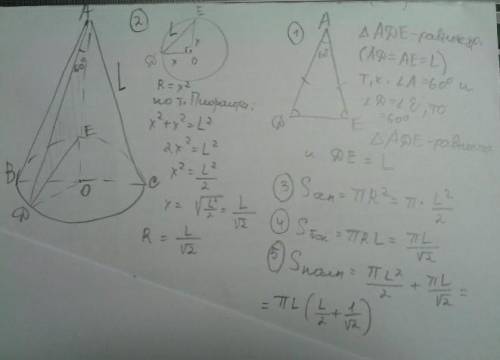 A
60°
L
B
E
O
C
D
②
E
L
x
D
x
O
R = x
по т. Пифагора:
x² + x² = L²
2x² = L²
x² = L²/2
x = √(L²/2) = L/√2
R = L/√2
①
A
60°
D
E
△ADE - равнобедр.
(AD = AE = L)
т.к. ∠A = 60° и
∠D = ∠E, то
= 60°
△ADE - равност
и DE = L
③ Sосн = πR² = π · L²/2
④ Sбок = πRL = πL/√2
⑤ Sполн = πL²/2 + πL/√2 =
= πL (L/2 + 1/√2)